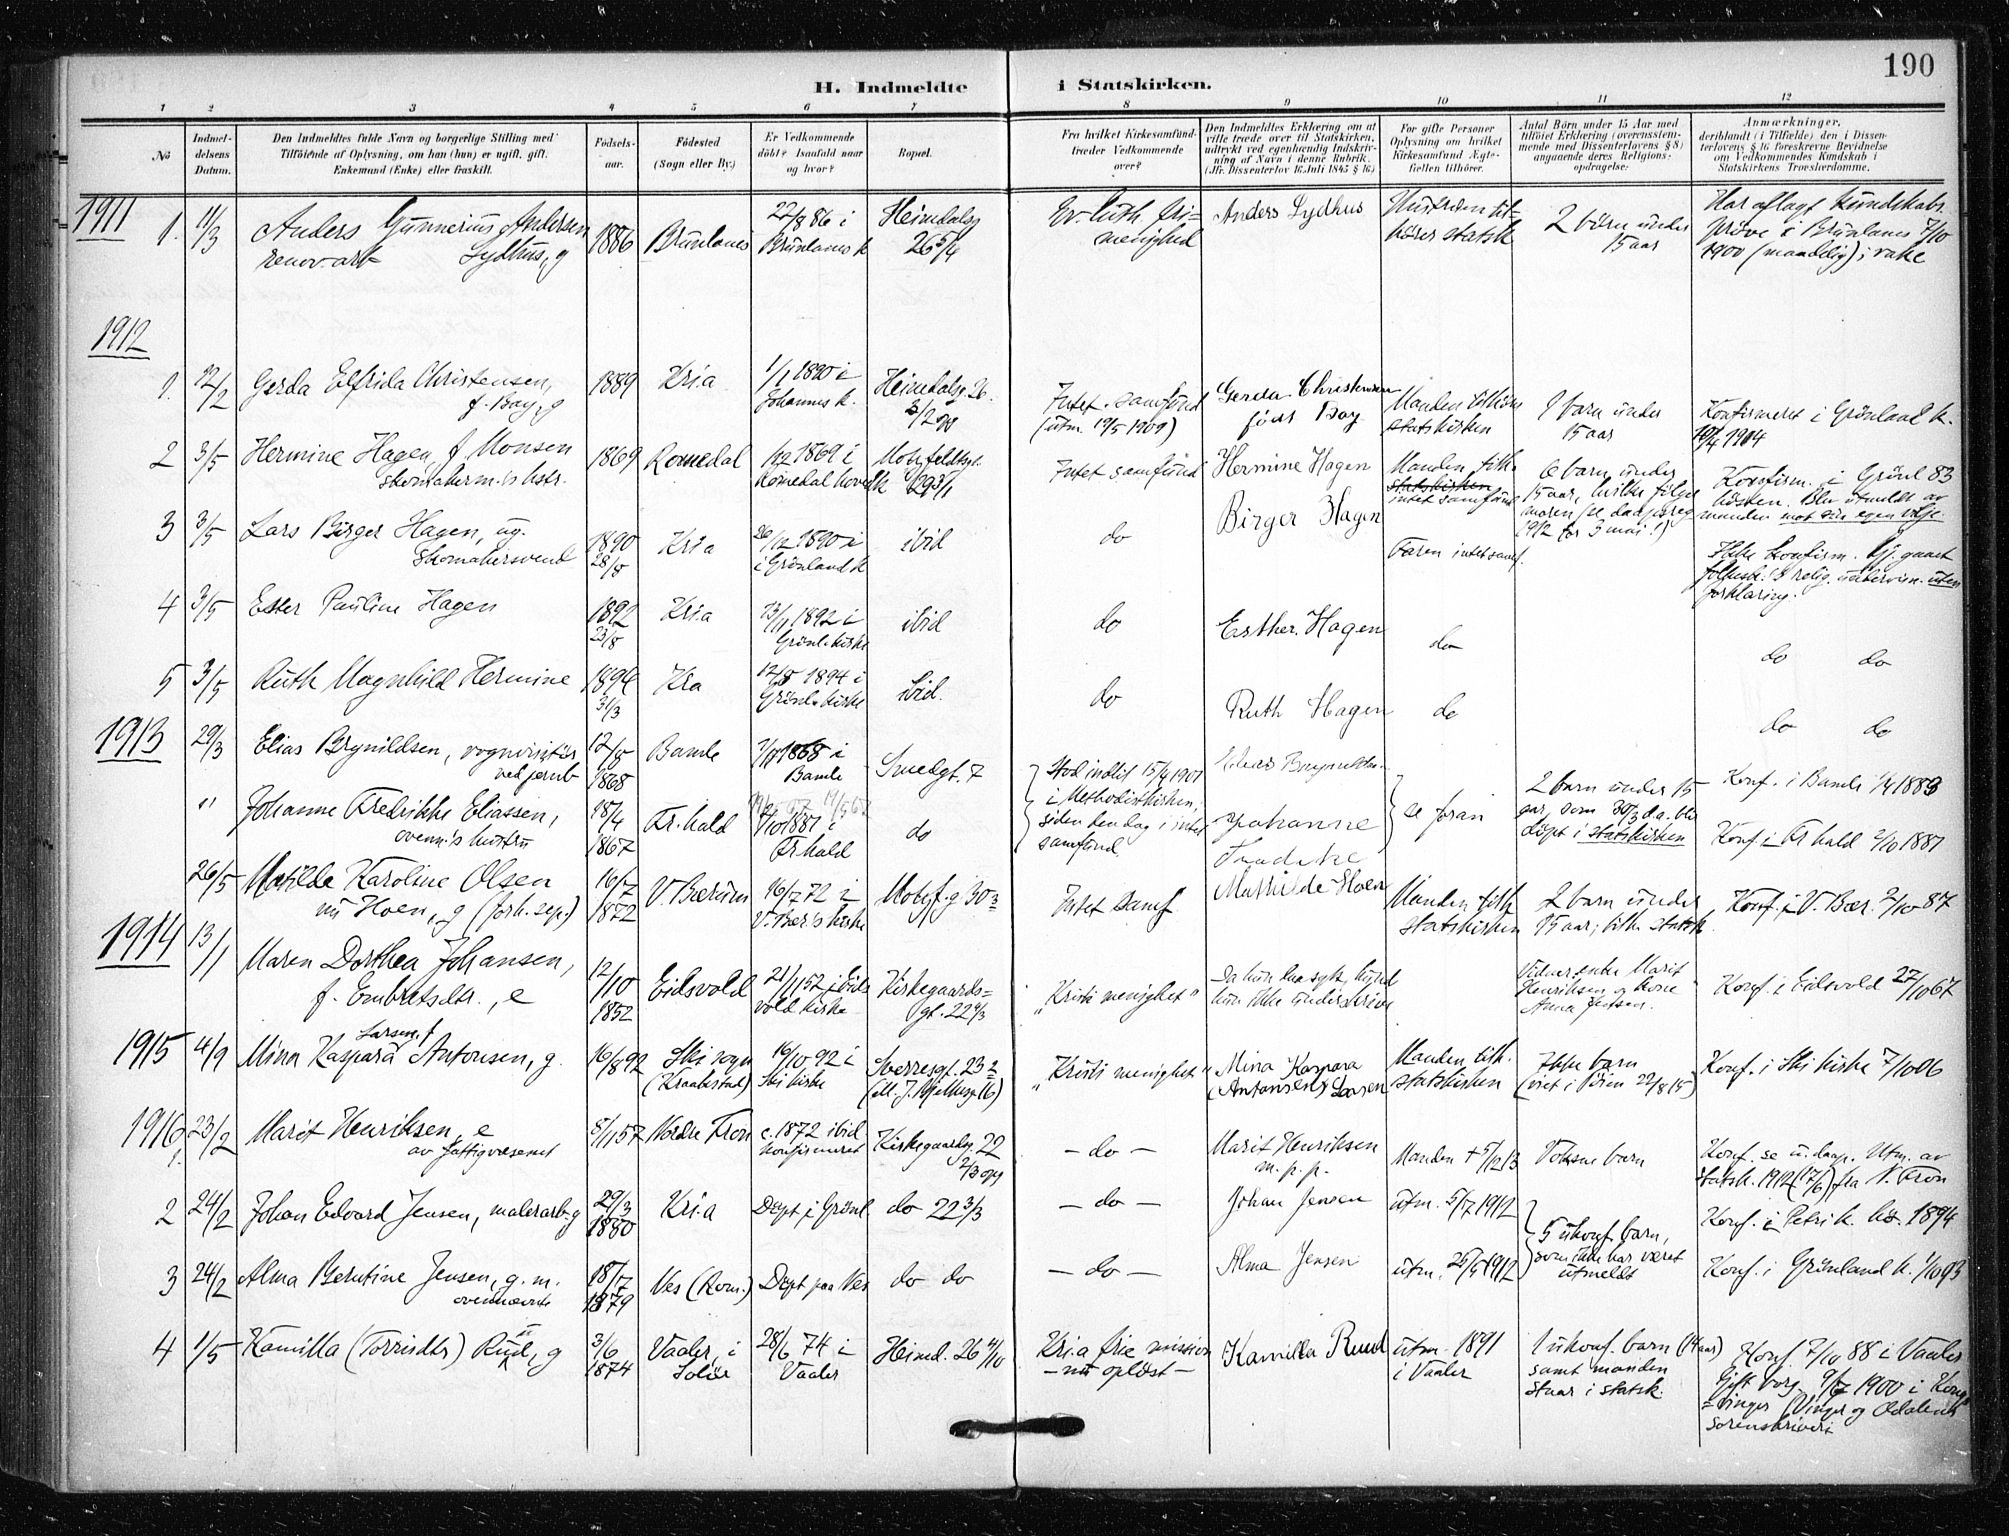 190
H. Indmeldte i Statskirken.
1 2 3 4 5 6 7 8 9 10 11 12
No
Indmel-
delsens
Datum.
Den Indmeldtes fulde Navn og borgerlige Stilling med
Tilföiende af Oplysning, om han (hun) er ugift, gift.
Enkemand (Enke) eller fraskilt.
Födsels-
aar.
Födested
(Sogn eller By.)
Er Vedkommende
döbt? Isaafald naar
og hvor?
Bopæl.
Fra hvilket Kirkesamfund
træder Vedkommende
over?
Den Indmeldtes Erklæring om at
ville træde over til Statskirken,
udtrykt ved egenhændig Indskriv-
ning af Navn i denne Rubrik.
(Jfr. Dissenterlov 16 Juli 1845 § 16)
For gifte Personer
Oplysning om hvilket
Kirkesamfund Ægte-
fællen tilhörer.
Antal Börn under 15 Aar med
tilföiet Erklæring (overensstem-
mende med Dissenterlovens § 8)
angaaende deres Religions-
opdragelse:
Anmærkninger,
deriblandt (i Tilfælde) den i Dissen-
terlovens § 16 foreskrevne Bevidnelse
om Vedkommendes Kundskab i
Statskirkens Troeslærdomme.
1911
1. 11/3 Anders Gunnerius Andersen
renov.arb Lydhus, g
1886 Brunlanes
22/8 86 i
Brunlanes k
Heimdalsg
26 5/4
Ev. luth. fri-
menighed
Anders Lydhus
Hustruen til-
hører statsk
2 børn under
15 aar
Har aflagt kundskabs
prøve i Brunlanes 7/10
1900 (mandelig) i
1912
1. 12/2 Gerda Elfrida Christensen,
f. Boy, g
1889 Kria
1/1 1890 i
Johannes k.
Heimdalsg. 26.
3/2 opg
Intet samfund
(utm. 19/5 1909)
Gerda Christensen
født Boy
Manden tilhører
statskirken
1 barn under
15 aar
Konfirmeret i Grønland k.
10/4 1904
2 3/5 Hermine Hagen f. Monsen
skomakerm.'s hstr.
1869 Romedal
1869 i
Romedal hovedk
Motzfeldtsgt.
29 3/1
Intet samfund
Hermine Hagen
Manden tilh.
statskirken
intet samfund
6 barn under
15 aar, hvilke følger
moren (se daabsreg.
1912 for 3 mai!)
Konfirm. i Grønl 83
høsten. Blev utmeldt av
manden mot sin egen vilje.
3 3/5 Lars Birger Hagen, ug.
skomakersvend
1890
28/8
Kria
26/12 1890 i
i Grønland k
ibid
do
Birger Hagen
Faren intet samf.
Ikke konfirm. Gj. gaaet
folkesk.'s relig. undervisn. uten
forklaring.
4 3/5 Ester Pauline Hagen
1892
23/8
Kria
13/11 1892 i
Grønl. kirke
ibid
do
Esther. Hagen
do
do do
5 3/5 Ruth Magnhild Hermine
1894
31/3
Kra
12/8 1894 i
Grønl. kirke
ibid.
do
Ruth Hagen
do
do do
1913
29/3 Elias Brynildsen, vognvisitør
ved jernb
12/8
1868
Bamle
1868 i
Bamle
Smedgt. 7
Stod indtil 15/4 1901
i Methodistkirken,
siden den dag i intet
samfund.
Elias Brynildsen
se foran
2 barn under 15
aar, som 30/3 d.a. blev
døpt i statskirken
Konf. i Bamle 1/4 1883
" Johanne Fredrikke Eliassen,
ovenn.'s hustru
18/4
1867
Fr.hald
1/10 1881 i
Fr.hald
do
Johanne
Fredrikke
Konf. i Fr hald 2/10 1881
26/5 Matilde Karoline Olsen
nu Hoen, g (forh. sep.)
16/7
1872
V. Bærum
16/7 72 i
V. Bær.'s kirke
Motzf.g 30
Intet Samf.
Mathilde Hoen
Manden tilh.
statskirken
2 barn under
15 aar, tilh. statsk.
Konf. i V. Bær. 2/10 87
1914
13/1 Maren Dorthea Johansen,
f. Embretsdtr., e
12/10
1852
Eidsvold
21/11 52 i Eids
vold kirke
Kirkegaards-
gt. 22
"Kristi menighet"
Da hun laa syk, kunde
hun ikke underskrive
Vidner enke Marit
Henriksen og kone
Anna Jensen
Konf. i Eidsvold 27/10 67
1915
4/9 Mina Kaspara Larsen, f. Antonsen, g.
16/8 92
Ski sogn
(Kraakstad)
16/10 92 i
Ski kirke
Sverresgt. 23
"Kristi menighet"
Mina Kaspara
(Antonsen) Larsen
Manden tilh.
statskirken
Ikke barn
(viet i 22/8 15)
Konf. i Ski kirke 7/10 06
1916
1. 23/2 Marit Henriksen, e
av fattigvæsenet
8/11 57
Nordre Fron
c. 1872 ibid
konfirmeret
Kirkegaardsg. 22
2/3 opg
- do -
Marit Henriksen
m. p. p.
Manden + 5/12 13
Voksne barn
Konf. se u. daap. Utm. av
statsk. 1912 (17/6) fra N. Fron
2 24/2 Johan Edvard Jensen, malerarb. g
29/3
1880
Kria
Døpt i Grønl
do 22 3/3
- do -
Johan Jensen
utm. 5/7 1912
5 ukonf. barn,
som ikke har været
utmeldt
Konf. i Petri k. hø. 1894
3 24/2 Alma Berntine Jensen, g. m.
ovennævnte
18/7
1879
Nes (Rom.)
Døpt paa Nes
do do
- do -
Alma Jensen
utm. 25/5 1912
Konf. i Grønland k. 1/10 93
4 1/5 Kamilla (Torrisdtr) Ruud, g
3/6
1874
Vaaler, i
Solør
28/6 74 i
Vaaler
Heimd. 26 4/10
Kria frie mission
- nu opløst -
Kamilla Ruud
utm. 1891
i Vaaler
1 ukonf. barn (14 aar)
samt manden
staar i statsk.
Konf. 7/10 88 i Vaaler
Gift borg. 9/6 1900 i Kongs
vinger (Vinger og Odalens
sorenskriveri